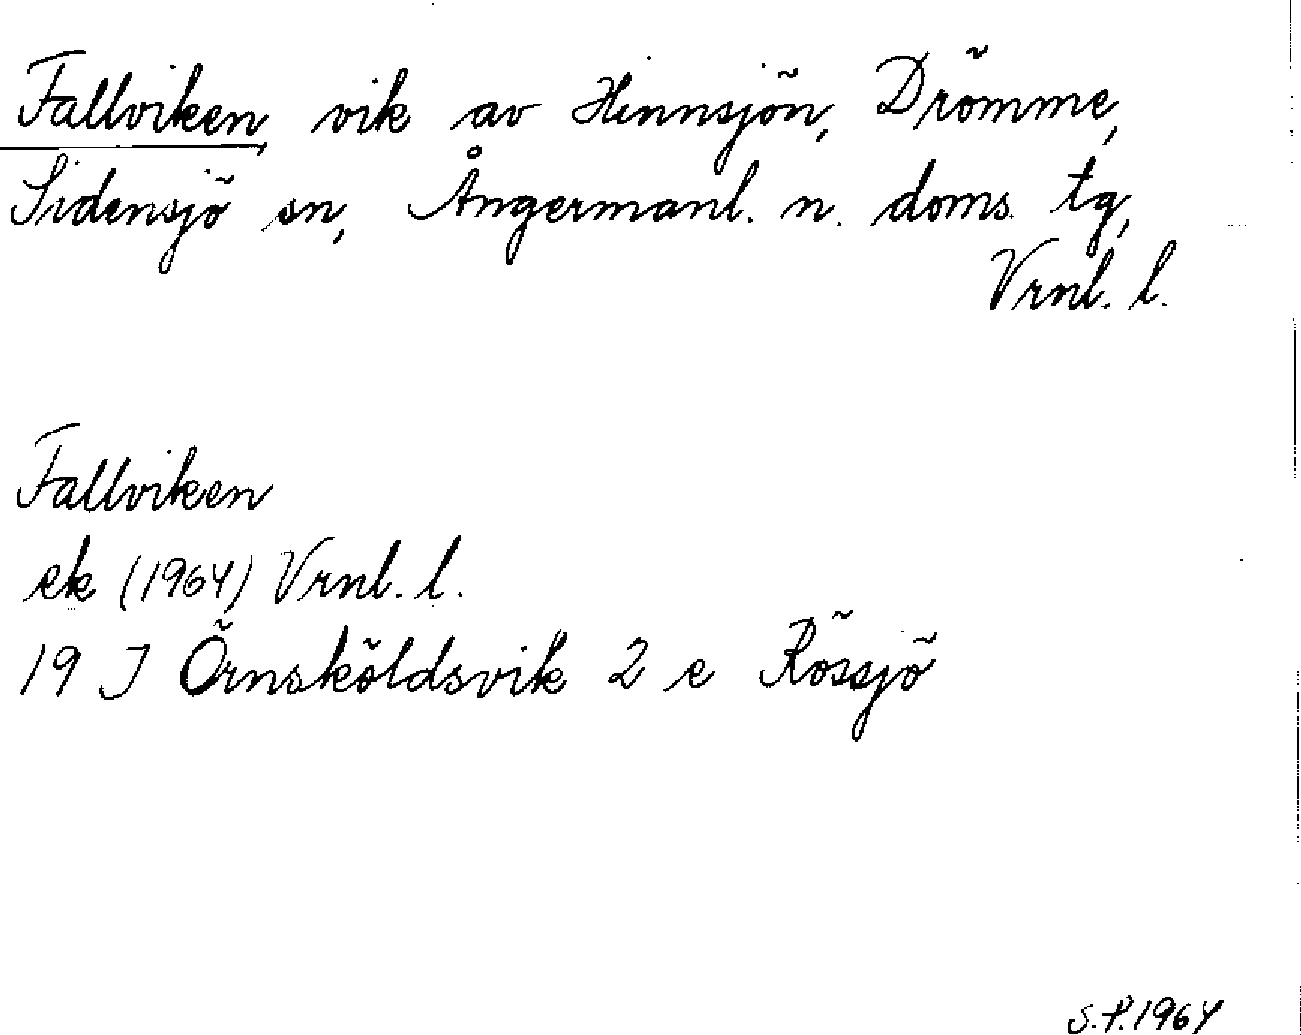 Fallviken, vik av Hinnsjön, Drömme,
Sidensjö sn, Ångermanl. n. doms. tg,
Vrnl. l.
Fallviken
ek (1964) Vrnl. l.
19 J Örnsköldsvik 2 e Rössjö
S.P. 1964